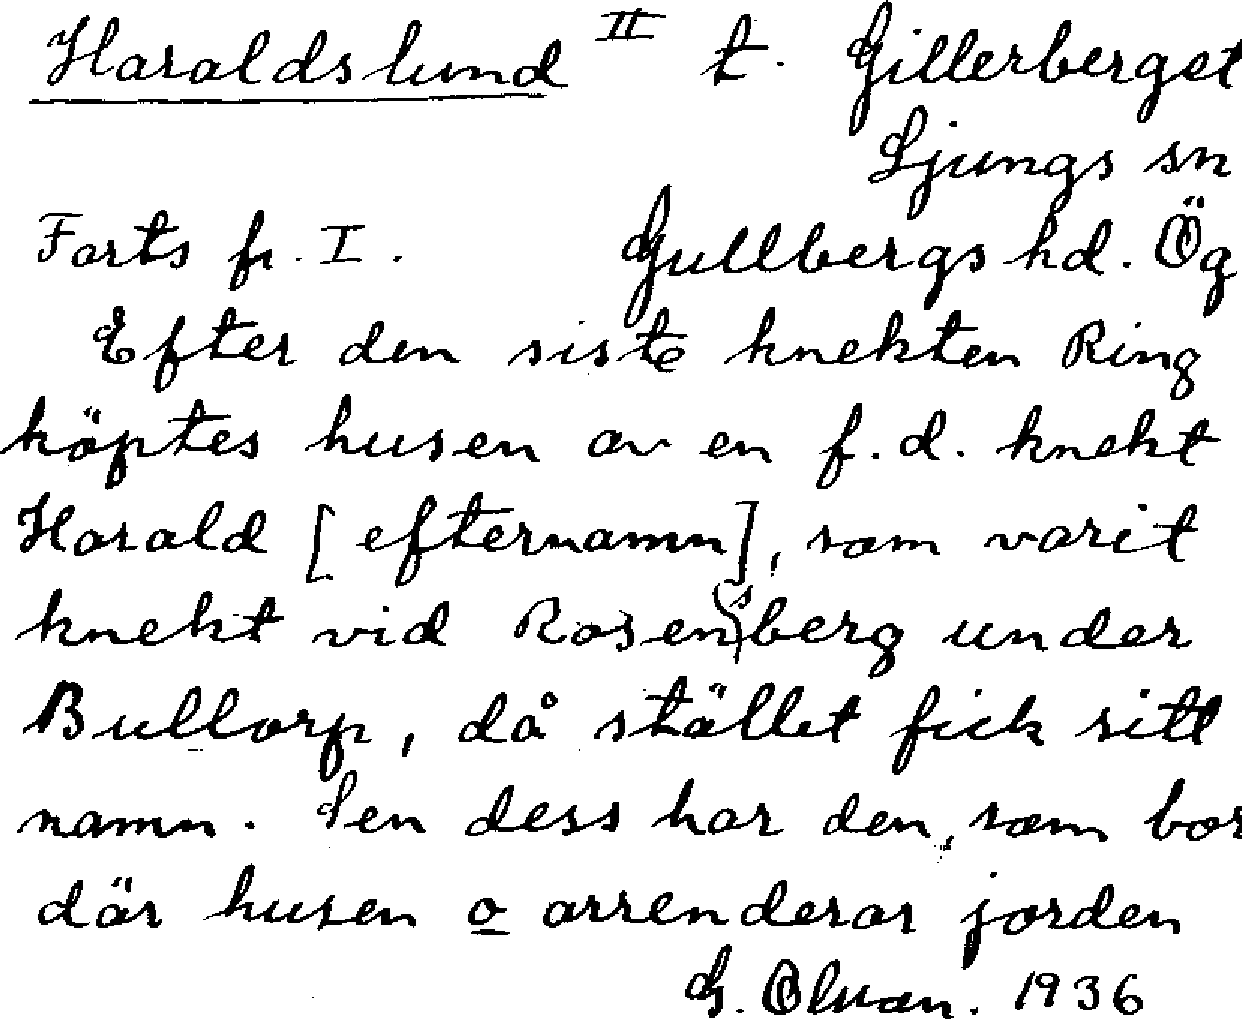 Haraldslund II t. Gillerberget
Ljungs sn
Forts fr. I. Gullbergs hd. Ög
Efter den siste knekten Ring
köptes husen av en f.d. knekt
Harald [efternamn], som varit
knekt vid Rosensberg under
Bullorp, då stället fick sitt
namn. Sen dess har den, som bor
där husen o arrenderar jorden
G. Olman. 1936